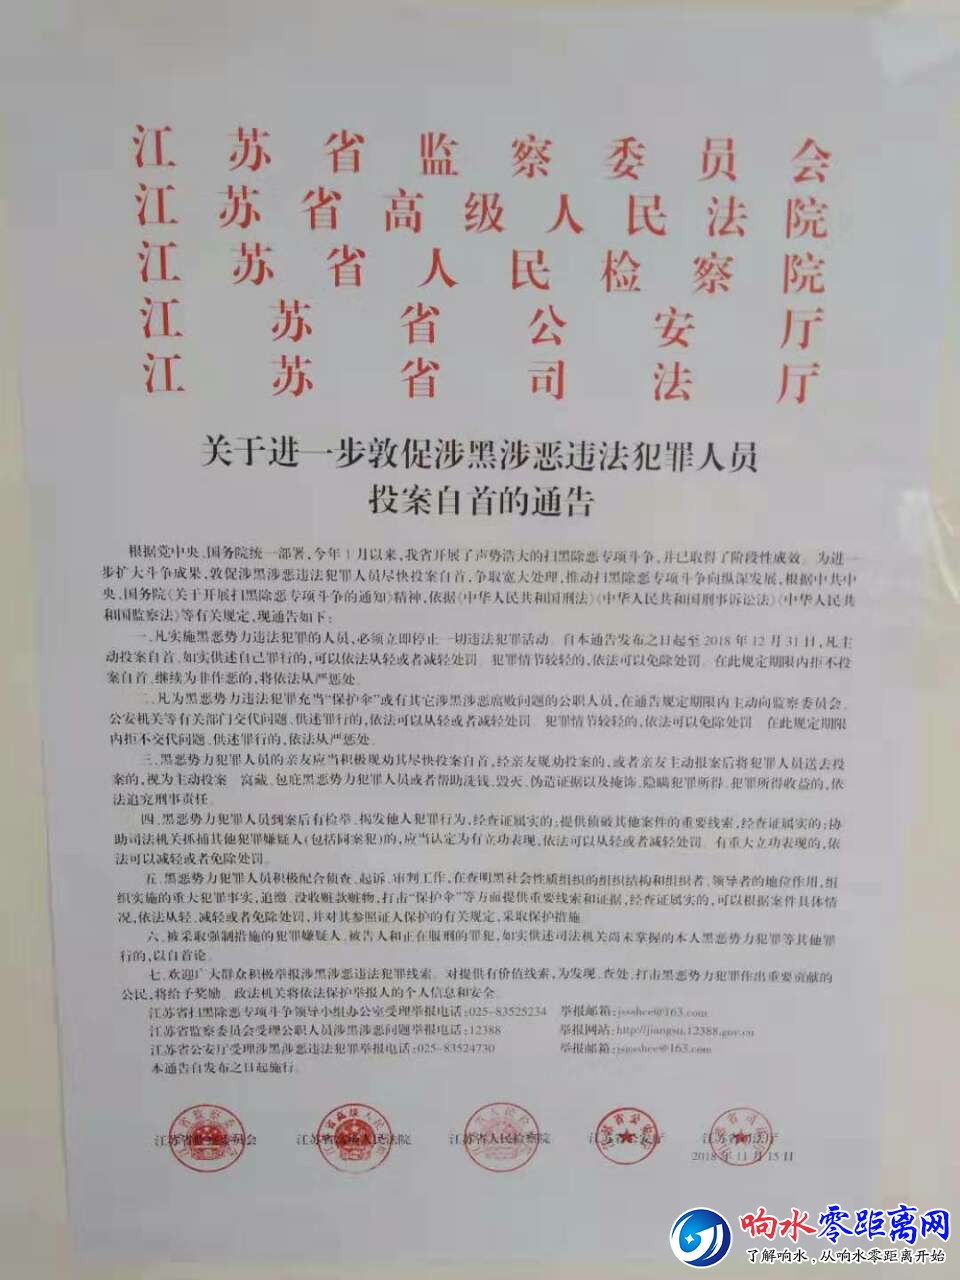 江苏省监察委员会
江苏省高级人民法院
江苏省人民检察院
江苏省公安厅
江苏省司法厅
关于进一步敦促涉黑涉恶违法犯罪人员
投案自首的通告
根据党中央、国务院统一部署,今年1月以来,我省开展了声势浩大的扫黑除恶专项斗争,并已取得了阶段性成效。为进一
步扩大斗争成果,敦促涉黑涉恶违法犯罪人员尽快投案自首,争取宽大处理,推动扫黑除恶专项斗争向纵深发展,根据中共中
央、国务院《关于开展扫黑除恶专项斗争的通知》精神,依据《中华人民共和国刑法》《中华人民共和国刑事诉讼法》《中华人民共
和国监察法》等有关规定,现通告如下:
一、凡实施黑恶势力违法犯罪的人员,必须立即停止一切违法犯罪活动。自本通告发布之日起至2018年12月31日,凡主
动投案自首、如实供述自己罪行的,可以依法从轻或者减轻处罚。犯罪情节较轻的,依法可以免除处罚。在此规定期限内拒不投
案自首、继续为非作恶的,将依法从严惩处。
二、凡为黑恶势力违法犯罪充当“保护伞”或有其它涉黑涉恶腐败问题的公职人员,在通告规定期限内主动向监察委员会、
公安机关等有关部门交代问题、供述罪行的,依法可以从轻或者减轻处罚。犯罪情节较轻的,依法可以免除处罚。在此规定期限
内拒不交代问题、供述罪行的,依法从严惩处。
三、黑恶势力犯罪人员的亲友应当积极规劝其尽快投案自首,经亲友规劝投案的,或者亲友主动报案后将犯罪人员送去投
案的,视为主动投案。窝藏、包庇黑恶势力犯罪人员或者帮助洗钱、毁灭、伪造证据以及掩饰、隐瞒犯罪所得、犯罪所得收益的,依
法追究刑事责任。
四、黑恶势力犯罪人员到案后有检举、揭发他人犯罪行为,经查证属实的;提供侦破其他案件的重要线索,经查证属实的;协
助司法机关抓捕其他犯罪嫌疑人(包括同案犯)的,应当认定为有立功表现,依法可以从轻或者减轻处罚。有重大立功表现的,依
法可以减轻或者免除处罚。
五、黑恶势力犯罪人员积极配合侦查、起诉、审判工作,在查明黑社会性质组织的组织结构和组织者、领导者的地位作用,组
织实施的重大犯罪事实,追缴、没收赃款赃物,打击“保护伞”等方面提供重要线索和证据,经查证属实的,可以根据案件具体情
况,依法从轻、减轻或者免除处罚,并对其参照证人保护的有关规定,采取保护措施。
六、被采取强制措施的犯罪嫌疑人、被告人和正在服刑的罪犯,如实供述司法机关尚未掌握的本人黑恶势力犯罪等其他罪
行的,以自首论。
七、欢迎广大群众积极举报涉黑涉恶违法犯罪线索。对提供有价值线索,为发现、查处、打击黑恶势力犯罪作出重要贡献的
公民,将给予奖励。政法机关将依法保护举报人的个人信息和安全。
江苏省扫黑除恶专项斗争领导小组办公室受理举报电话:025-83525234 举报邮箱:jssshce@163.com
江苏省监察委员会受理公职人员涉黑涉恶问题举报电话:12388 举报网站:http://jiangsu.12388.gov.cn
江苏省公安厅受理涉黑涉恶违法犯罪举报电话:025-83524730 举报邮箱:@163.com
本通告自发布之日起施行。
江苏省监察委员会 江苏省高级人民法院 江苏省人民检察院 江苏省公安厅 江苏省司法厅
2018年11月15日
响水零距离网
了解响水,从响水零距离开始